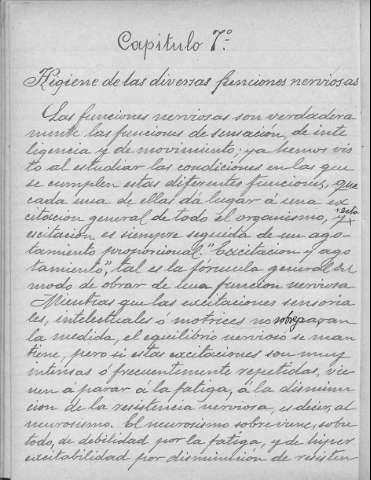 Capitulo 7º
Higiene de las diversas funciones nerviosas
Las funciones nerviosas son verdadera
mente las funciones de sensación, de inte
ligencia y de movimiento: ya hemos vis
to al estudiar las condiciones en las que
se cumplen estas diferentes funciones, que
cada una de ellas dá lugar á una ex
citación general de todo el organismo, y esta
excitación es siempre seguida de un ago-
tamiento proporcional. "Excitacion y ago
tamiento", tal es la fórmula general del
modo de obrar de una funcion nerviosa
Mientras que las excitaciones sensoria
les, intelectuales ó motrices no sobrepasan
la medida, el equilibrio nervioso se man
tiene, pero si estas excitaciones son muy
intensas ó frecuentemente repetidas, vie
nen á parar á la fatiga, á la disminu
cion de la resistencia nerviosa, es decir, al
neurosismo. El neurosismo sobreviene, sobre
todo, de debilidad por la fatiga, y de hiper
excitabilidad por disminución de resisten